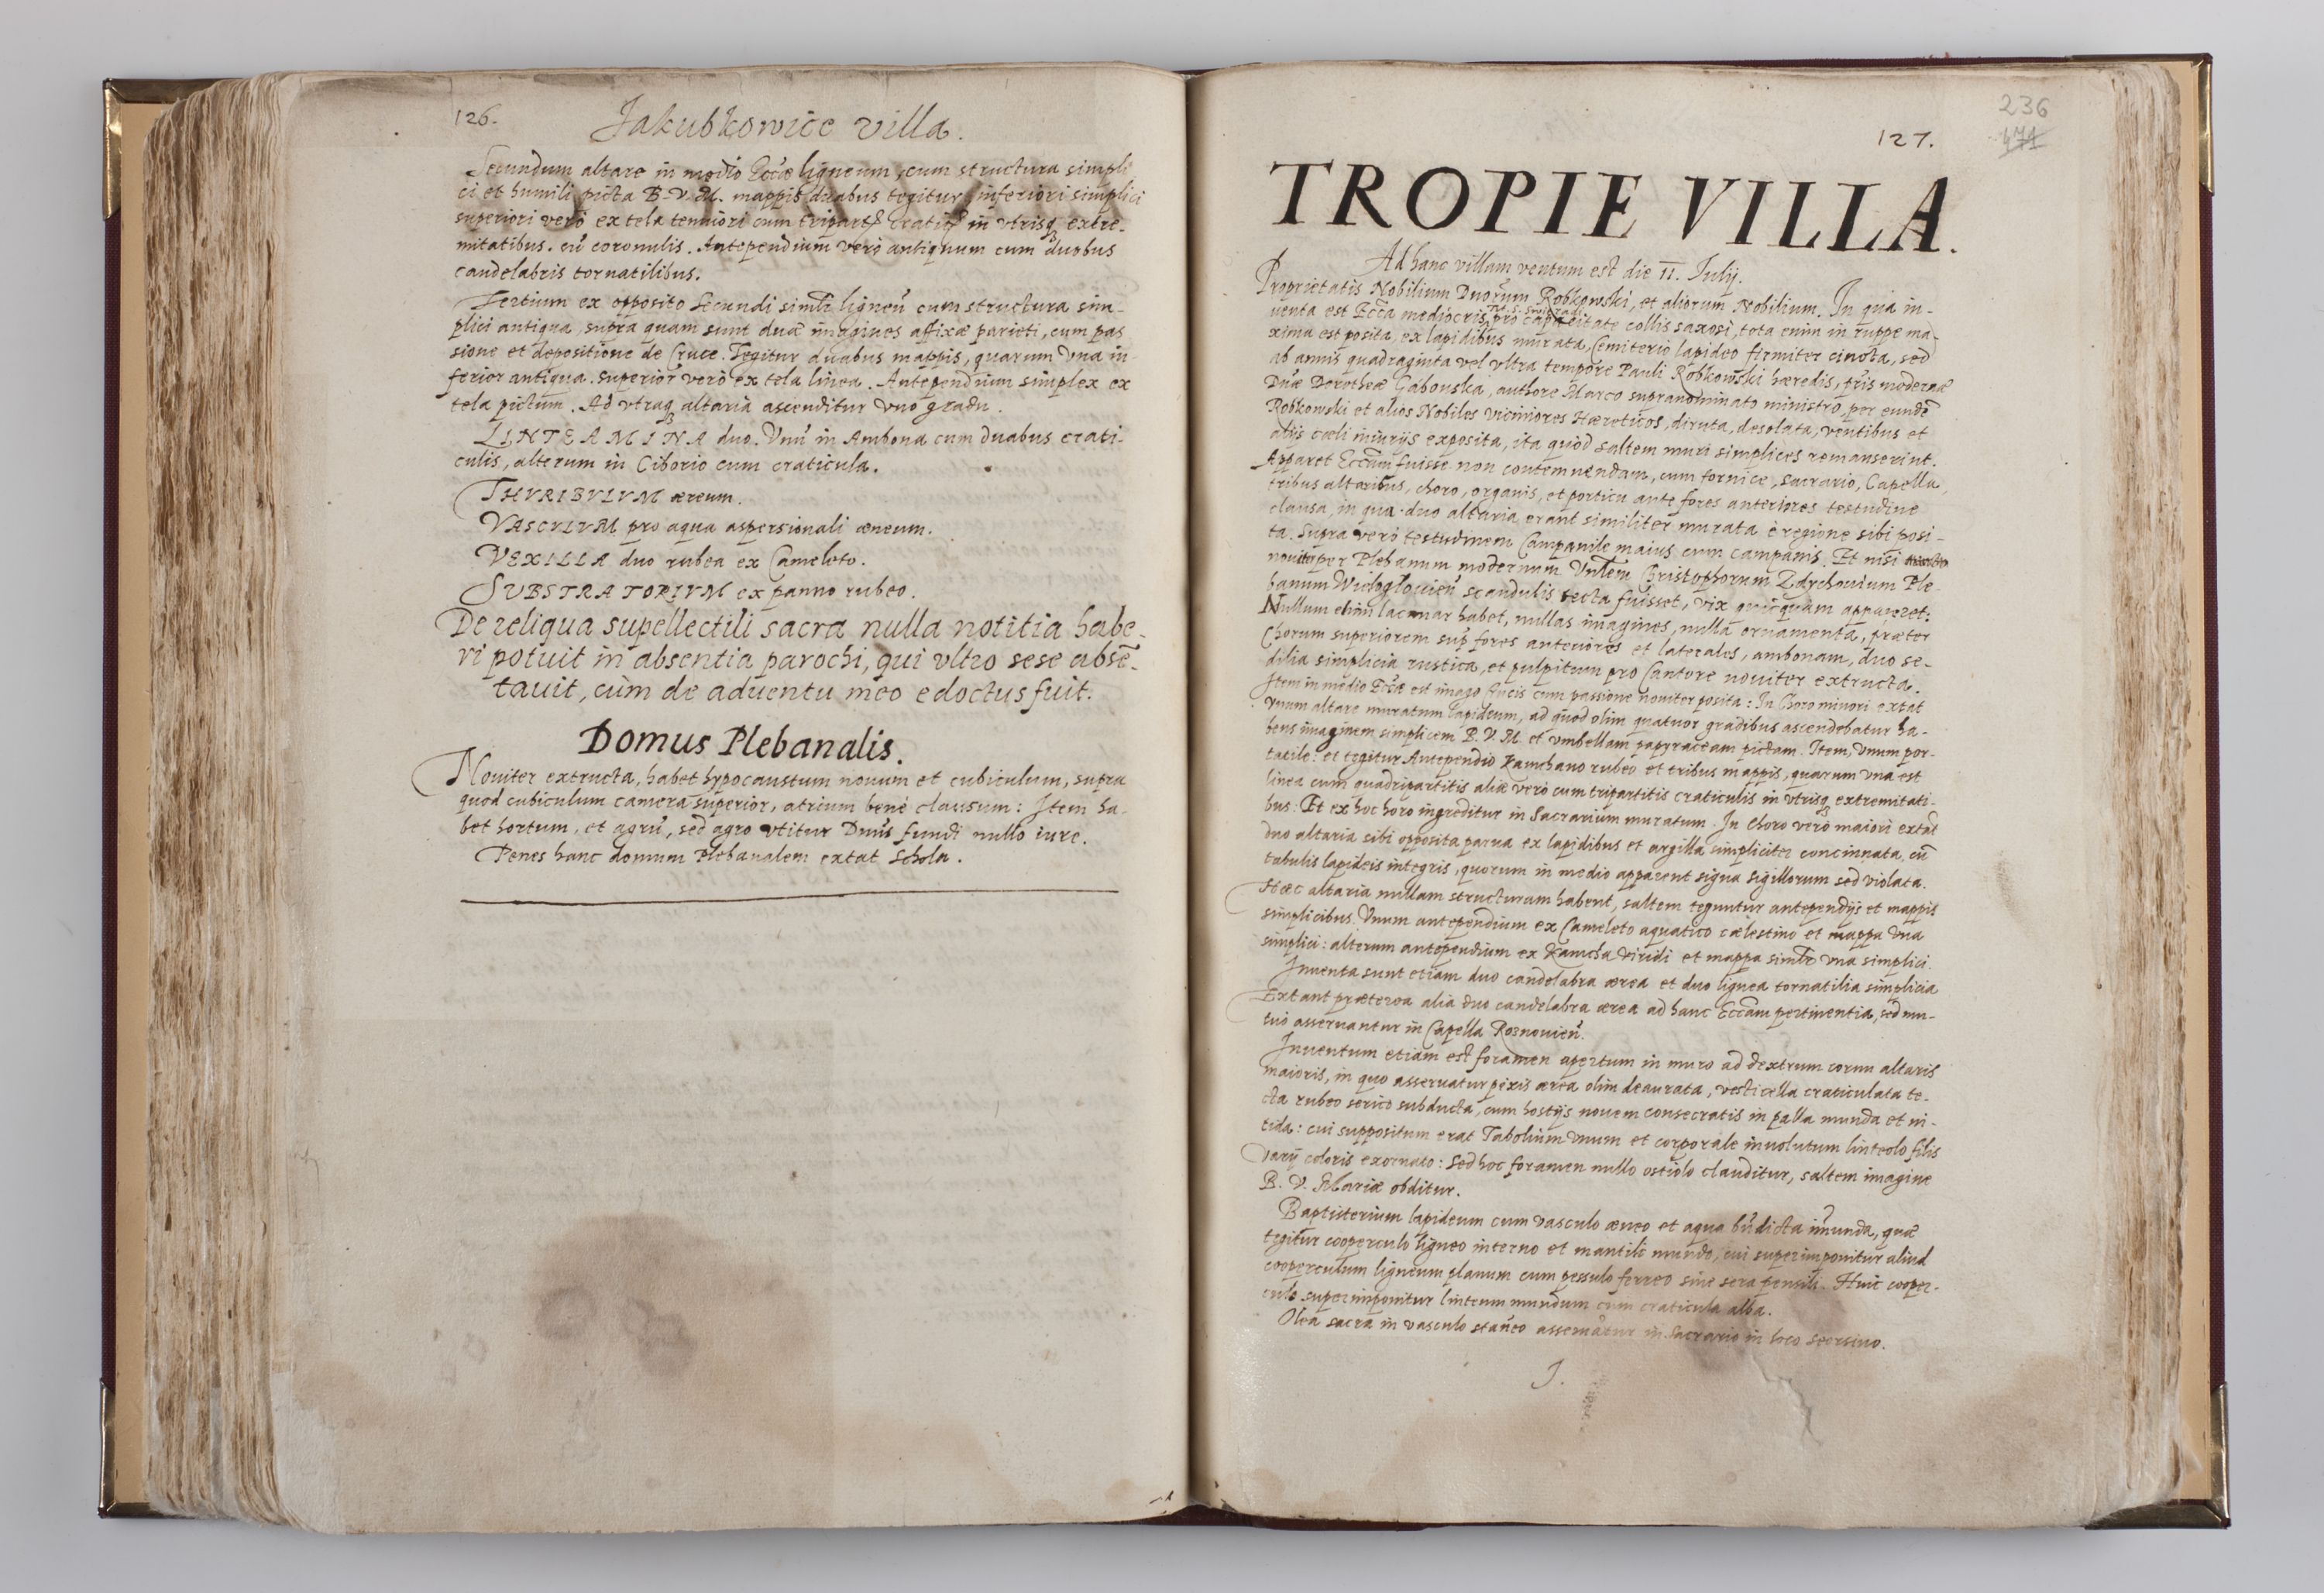 126.
Jakubkowice villa.
Secundum altare in medio Eccãe ligneum, cum structura simpli
ci et humili picta B. V. M. mappis duabus tegitur, inferiori simplici
superiori verò ex tela tenuiori cum in vtrisq extre-
mitatibus. cũ coronulis. Antependium verò antiquum cum duobus
candelabris tornatilibus.
Tertium ex opposito Secundi simłr ligneũ cum structura sim-
plici antiqua, supra quam sunt duæ imagines affixæ parieti, cum pas
sione et depositione de Cruce. Tegitur duabus mappis, quarum vna in-
ferior antiqua. superior verò ex tela linea. Antependium simplex ex
tela pictum. Ad vtraq altaria ascenditur vno gradu.
LINTEAMINA duo. Vnũ in Ambona cum duabus crati-
culis, alterum in Ciborio cum craticula.
THVRIBVLVM æreum.
VASCVLVM pro aqua aspersionali æneum.
VEXILLA duo rubea ex Cameloto.
SUBSTRATORIVM ex panno rubeo.
De reliqua supellectili sacra nulla notitia habe-
ri potuit in absentia parochi, qui vltro sese absẽ-
tauit, cùm de aduentu meo edoctus fuit.
Domus Plebanalis.
Nouiter extructa, habet hypocaustum nouum et cubiculum, supra
quod cubiculum camera superior, atrium benè clausum: Item ha-
bet hortum, et agrũ, sed agro vtitur Dnũs fundi nullo iure.
Penes hanc domum Plebanalem extat Schola.
236
471
127.
TROPIE VILLA.
Ad hanc villam ventum est die 11. Julij.
Proprietatis Nobilium Dnorum Robkowski, et aliorum Nobilium. In qua in-
uenta est Ecca mediocris, pro capacitate collis saxosi, tota enim in ruppe ma-
xima est posita, ex lapidibus murata, Cemiterio lapideo firmiter cincta, sed
ab annis quadraginta vel vltra tempore Pauli Robkowski hæredis, fris modernæ
Dnæ Dorotheæ Gabonska, authore Marco supranominato ministro, per eundẽ
Robkowski et alios Nobiles viciniores Hæreticos, diruta, desolata, ventibus et
alijs cæli iniurijs exposita, ita quòd saltem muri simplices remanserint.
Apparet Eccãm fuisse non contemnendam, cum fornice, sacrario, Capella,
tribus altaribus, choro, organis, et porticu ante fores anteriores testudine
clausa, in qua duo altaria erant similiter murata è regione sibi posi-
ta. Supra verò testudinem Campanile maius cum campanis. Et nisi
nouiter per Plebanum modernum Vnłem Christophorum Zdrchouium Ple-
banum Wieloglouieñ scandulis tecta fuisset, vix quicquam appareret.
Nullum etiam lacunar habet, nullas imagines, nulla ornamenta, præter
Chorum superiorem sup fores anteriores et laterales, ambonam, duo se-
dilia simplicia rustica, et pulpitum pro Cantore nouiter extructa.
Item in medio Eccæ est imago Crucis cum passione nouiter posita: In Choro minori extat
vnum altare muratum lapideum, ad quod olim quatuor gradibus ascendebatur ha-
bens imaginem simplicem B. V. M. et vmbellam papyraceam pictam. Item, vnum por-
tatile: et tegitur Antependio Kamchano rubeo et tribus mappis, quarum vna est
linea cum quadripartitis aliæ verò cum tripartitis craticulis in vtrisq extremitati-
bus. Et ex hoc horo ingreditur in Sacrarium muratum. In Choro verò maiori extãt
duo altaria sibi opposita parua ex lapidibus et argilla simpliciter concinnata, cũ
tabulis lapideis integris, quorum in medio apparent signa sigillorum sed violata.
Hæc altaria nullam structuram habent, saltem teguntur antependijs et mappis
simplicibus. Vnum antependium ex Cameloto aquatico cælestino et mappa vna
simplici: alterum antependium ex Kamcha viridi et mappa simłr vna simplici.
Inuenta sunt etiam duo candelabra ærea et duo lignea tornatilia simplicia
Extant præterea alia duo candelabra ærea ad hanc Eccãm pertinentia, sed mu-
tuò asseruantur in Capella Roznouieñ.
Inuentum etiam est foramen apertum in muro ad dextrum cornu altaris
maioris, in quo asseruatur pixis ærea olim deaurata, vesticella craticulata te-
cta rubeo serico subducta, cum hostijs nouem consecratis in palla munda et ni-
tida: cui suppositum erat Tabolium vnum et corporale inuolutum linteolo filis
varij coloris exornato: Sed hoc foramen nullo ostiolo clauditur, saltem imagine
B. V. Mariæ obditur.
Baptisterium lapideum cum vasculo æneo et aqua bñdicta immunda, quæ
tegitur cooperculo ligneo interno et mantili mundo, cui superimponitur aliud
cooperculum ligneum planum cum pessulo ferreo sine sera pensili. Huic cooper-
culo superimponitur linteum mundum cum craticula alba.
Olea sacra in vasculo stañeo asseruãtur in Sacrario in loco
J.